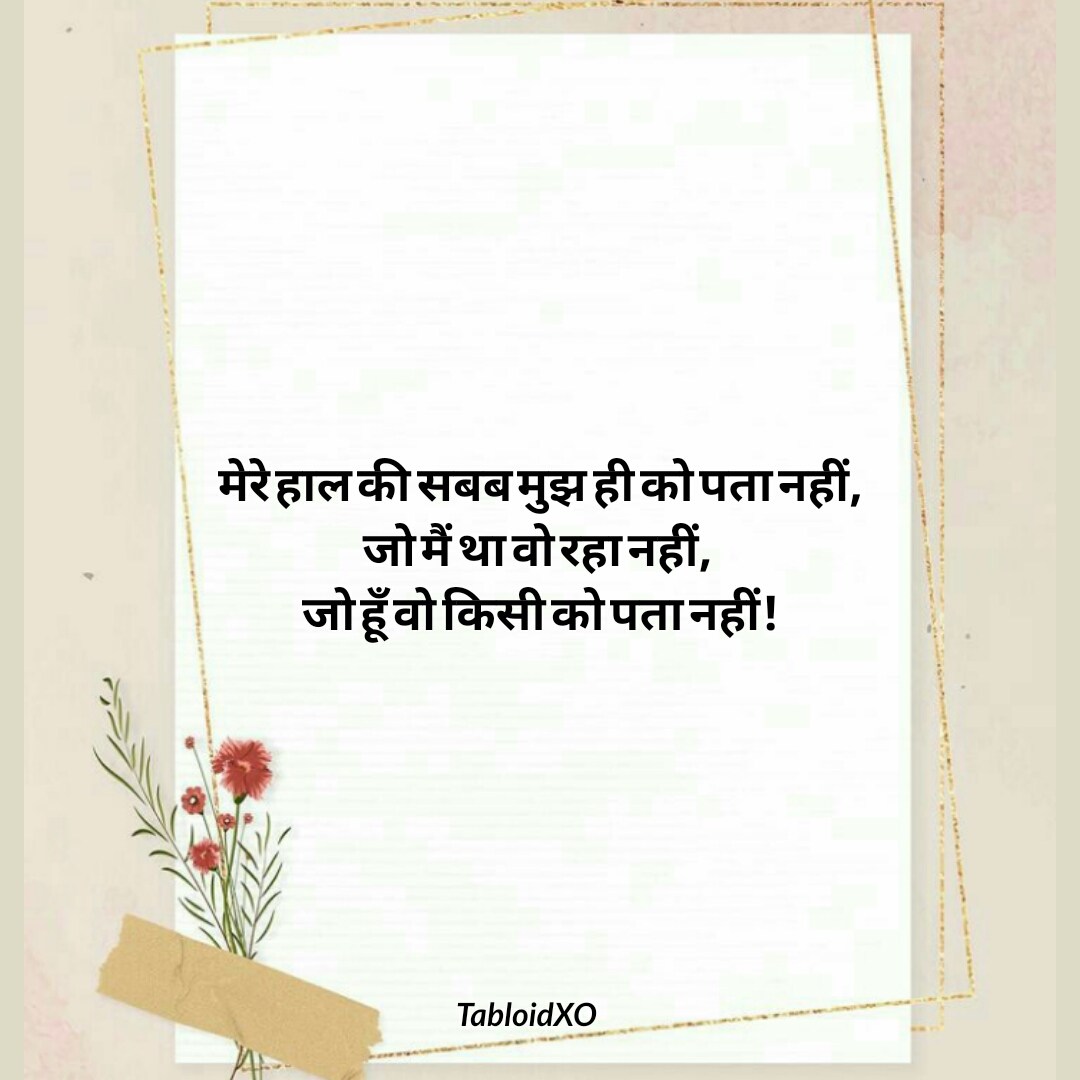 मेरे हाल की सबब मुझ ही को पता नहीं,
जो मैं था वो रहा नहीं,
जो हूँ वो किसी को पता नहीं!
TabloidXO